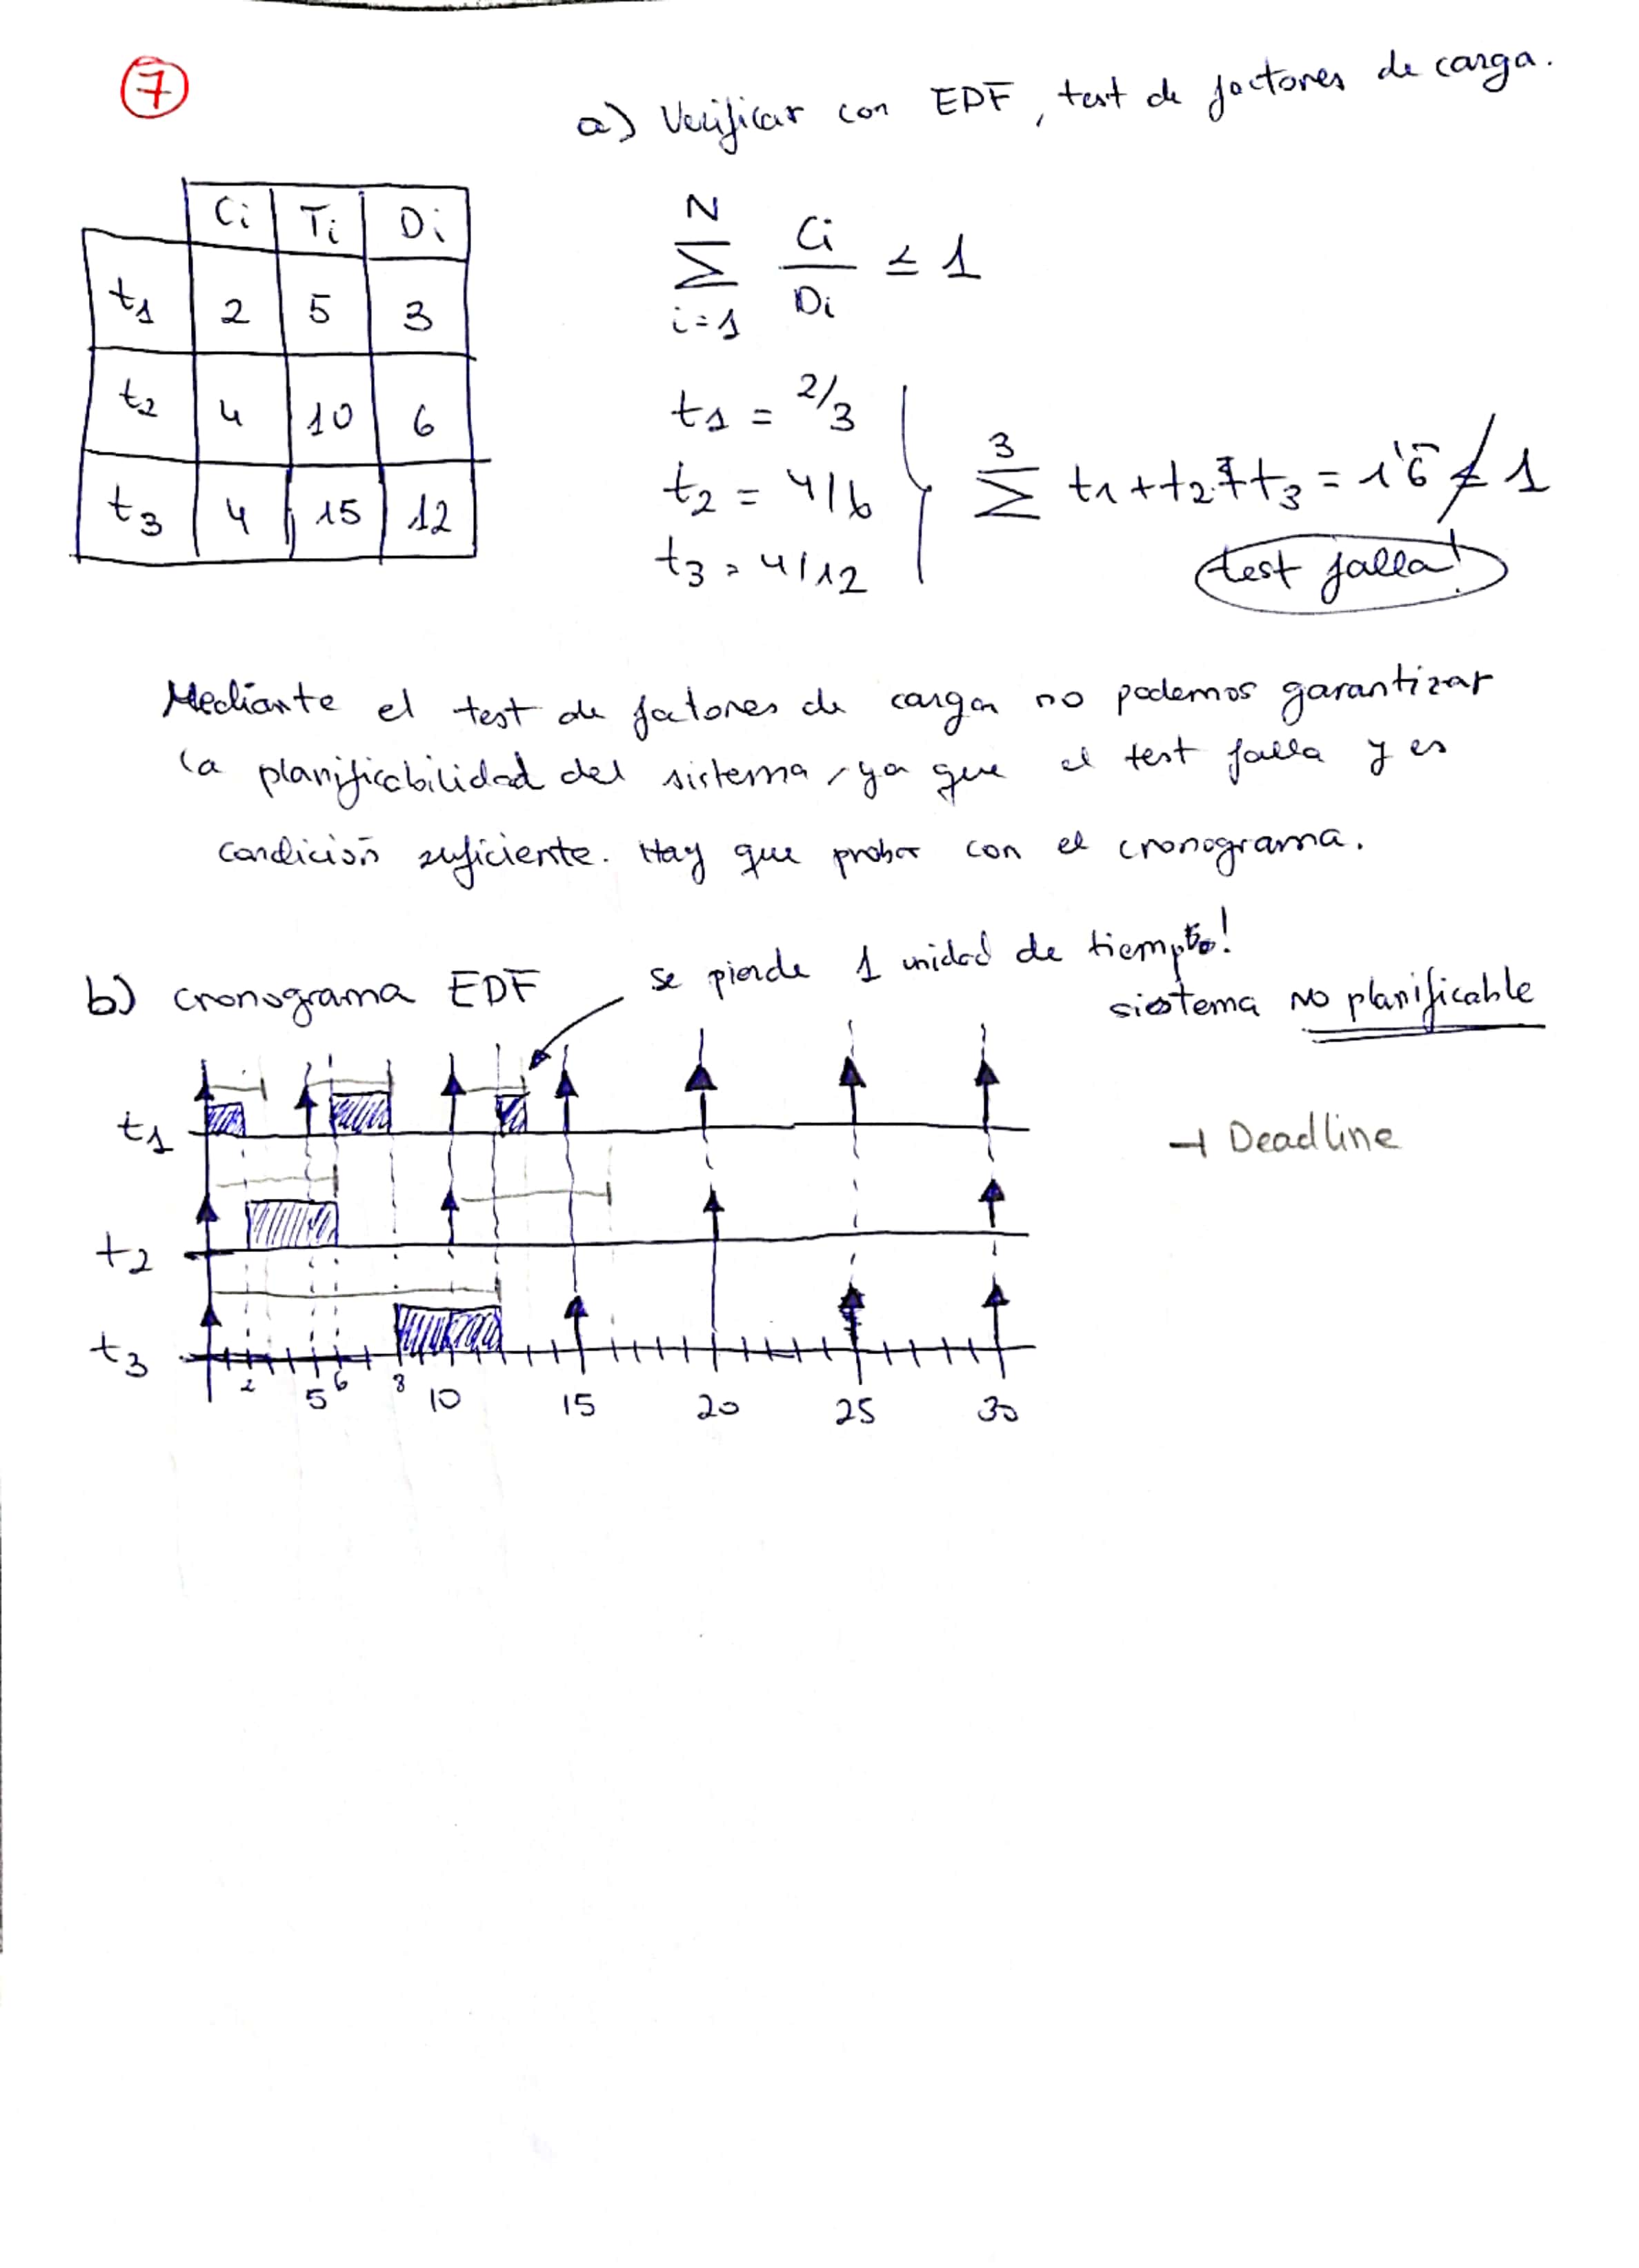 7
a) Verificar con EDF, test de factores de carga.
Ci Ti Di
t1 2 5 3
t2 4 10 6
t3 4 15 12
N
∑ Ci/Di ≤ 1
i=1
t1 = 2/3
t2 = 4/6
t3 = 4/12
3
∑ t1 + t2 + t3 = 1'6̄ ≰ 1
test falla!
Mediante el test de factores de carga no podemos garantizar
la planificabilidad del sistema, ya que el test falla y es
condición suficiente. Hay que probar con el cronograma.
b) cronograma EDF
se pierde 1 unidad de tiempo!
sistema NO planificable
t1
⊣ Deadline
t2
t3
2 5 6 8 10 15 20 25 30